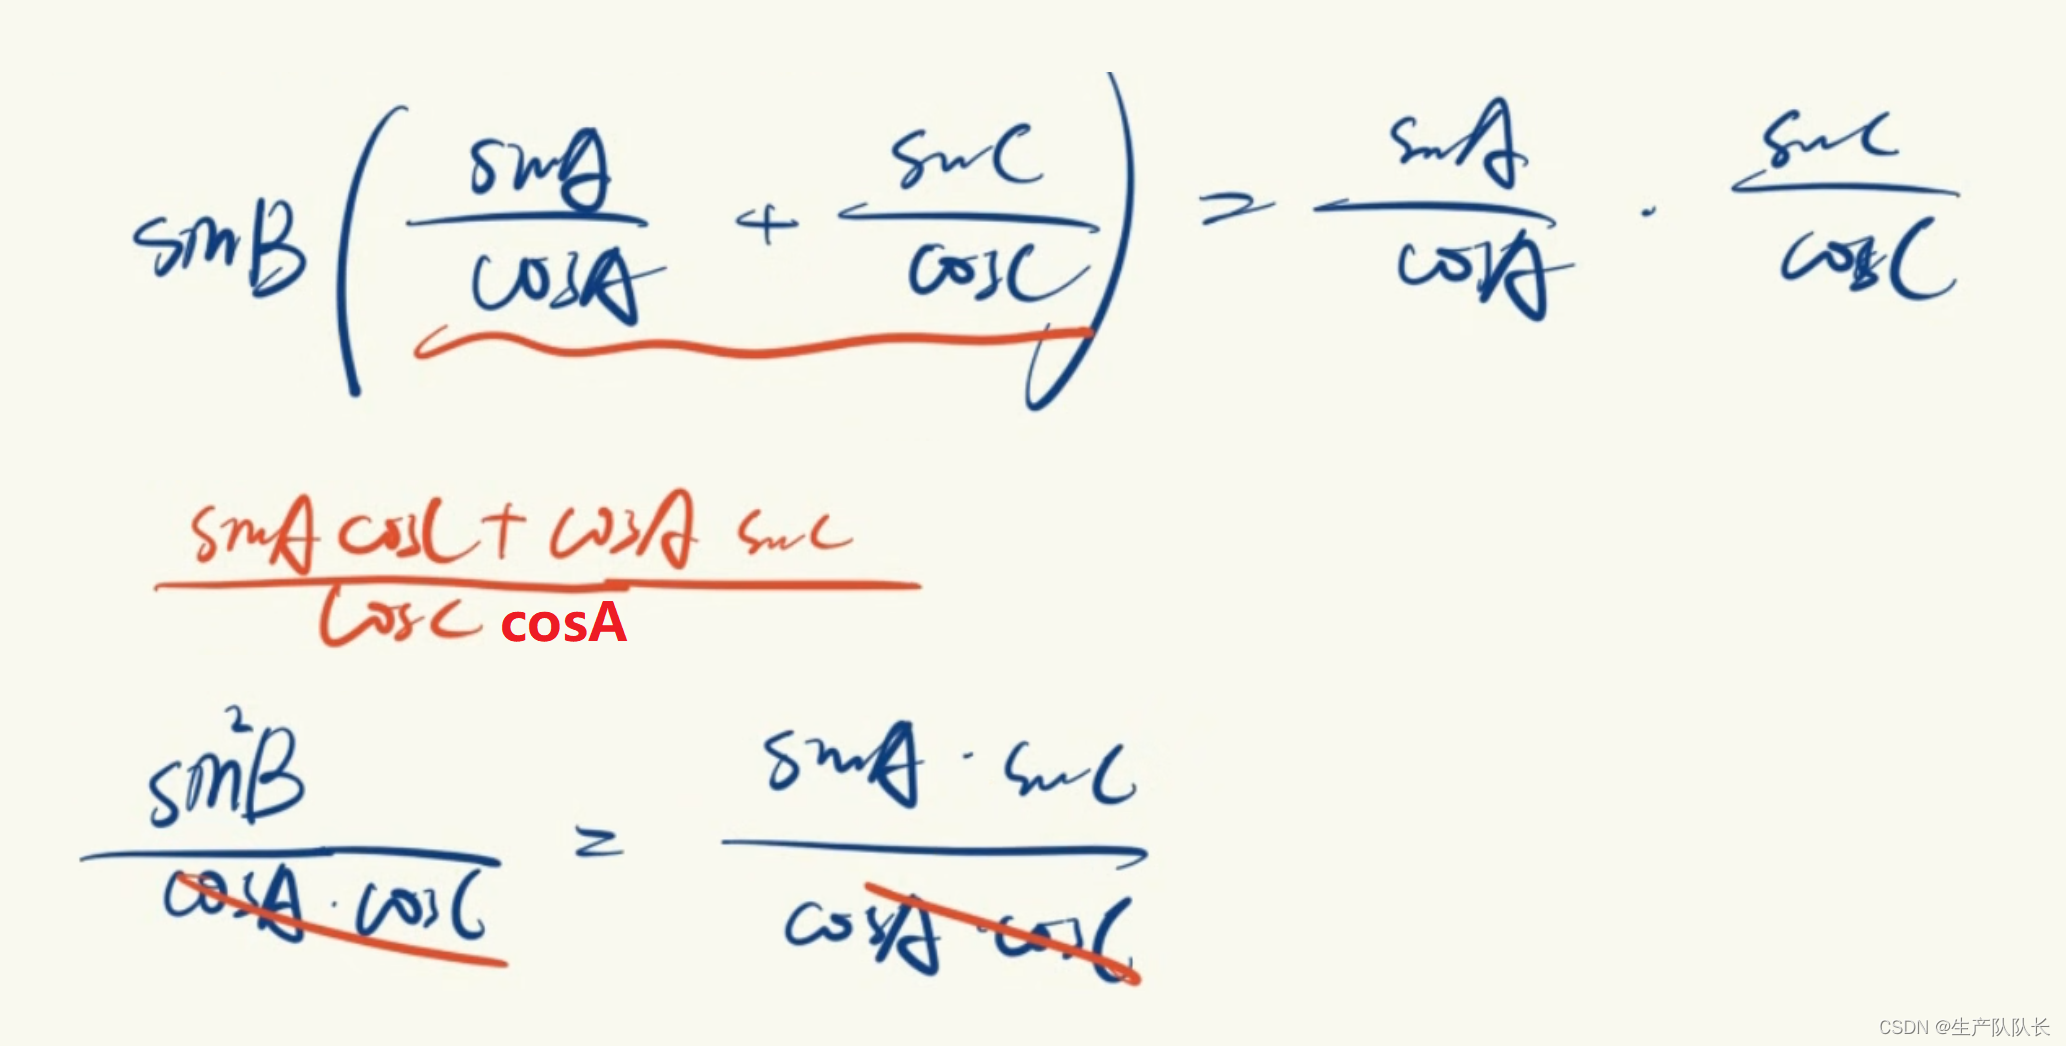 sinB ( sinA/cosA + sinC/cosC ) = sinA/cosA · sinC/cosC
sinA cosC + cosA sinC
cosC cosA
sin²B/cosA · cosC = sinA · sinC/cosA · cosC
CSDN @生产队队长